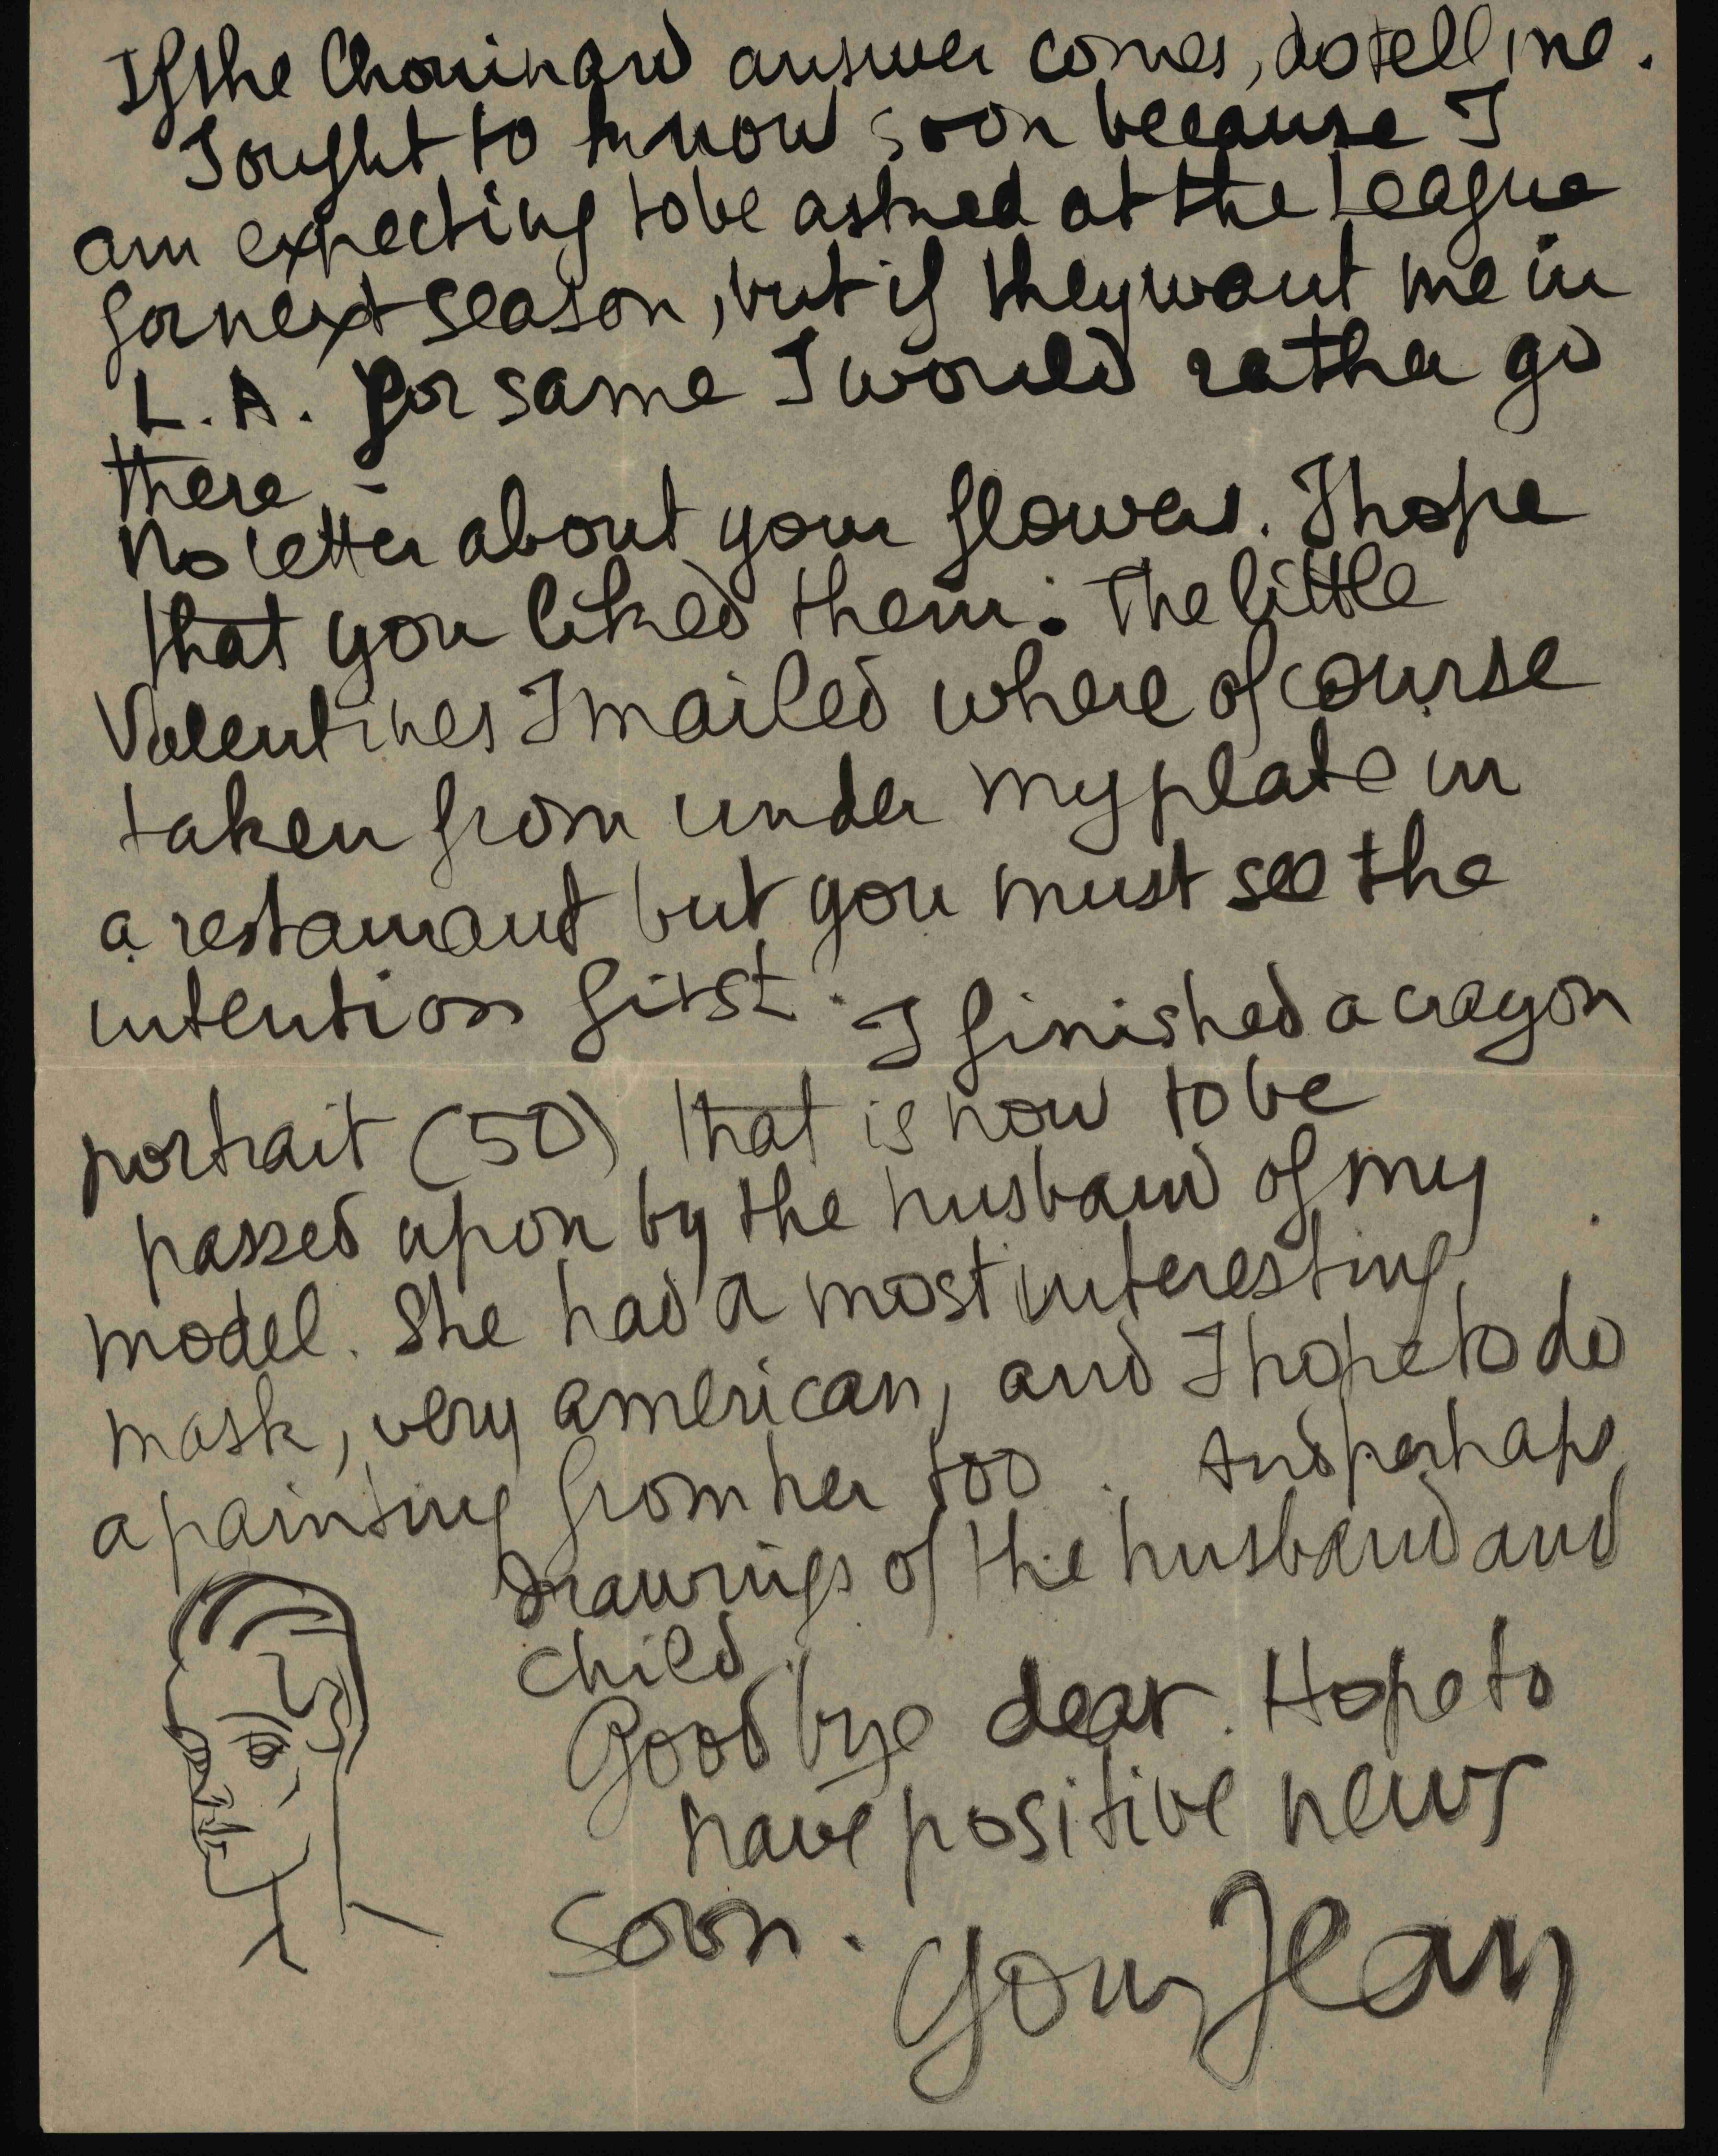 If the Chouinard answer comes, do tell me.
I ought to know soon because I
am expecting to be asked at the League
for next season, but if they want me in
L.A. for same I would rather go
there -
No letter about your flowers. I hope
that you liked them. The little
Valentines I mailed where of course
taken from under my plate in
a restaurant but you must see the
intention first. I finished a crayon
portrait (50) that is now to be
passed upon by the husband of my
model. She had a most interesting
mask, very american, and I hope to do
a painting from her too. And perhaps
drawings of the husband and
child.
Good bye dear. Hope to
have positive news
soon. Your Jean